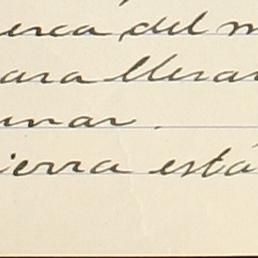 erca del m
ara llevar
unar.
ierra está